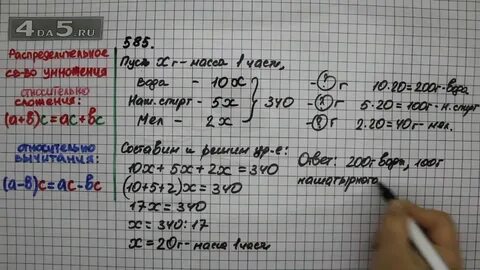 4DA5.RU
Распределительное
св-во умножения
относительно
сложения:
(а+в)с=ас+вс
относительно
вычитания:
(а-в)с=ас-вс
585.
Пусть x г - масса 1 части,
Вода - 10x
Наш. спирт - 5x
Мел - 2x
} 340
- ? г
- ? г
- ? г
10·20=200г-вода
5·20=100г-н.спирт
2·20=40г-мел.
Составим и решим ур-е:
10x+5x+2x=340
(10+5+2)x=340
17x=340
x=340:17
x=20г-масса 1 части
Ответ: 200г воды, 100г
нашатырного